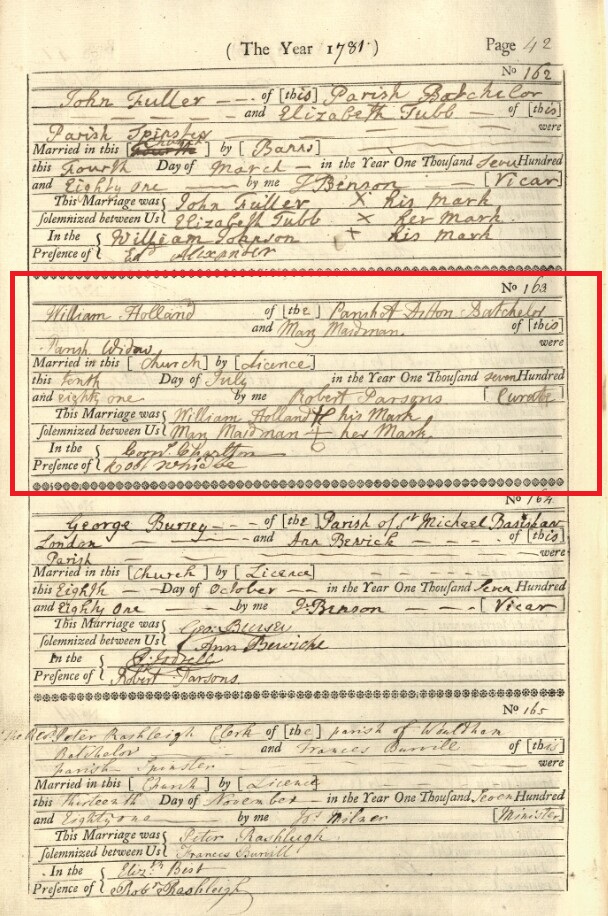 ( The Year 1781 ) Page 42
No 162
John Fuller of [this] Parish Batchelor
and Elizabeth Tubb of [this]
Parish Spinster were
Married in this [ ] by [Banns]
this Fourth Day of March in the Year One Thousand Seven Hundred
and Eighty one by me J Benson [Vicar]
This Marriage was { John Fuller X his Mark
Solemnized between Us { Elizabeth Tubb X her Mark
In the { William Johnson + his Mark
Presence of { Edd Alexander
No 163
William Holland of [the] Parish of Aston Batchelor
and Mary Maidman of [this]
Parish Widow were
Married in this [Church] by [Licence]
this tenth Day of July in the Year One Thousand seven Hundred
and eighty one by me Robert Parsons [Curate]
This Marriage was { William Holland his Mark
Solemnized between Us { Mary Maidman her Mark
In the { Corns. Charlton
Presence of {
No 164
George Bursey of [the] Parish of St Michael
London and Ann Bewick of [this]
Parish were
Married in this [Church] by [Licence]
this Eighth Day of October in the Year One Thousand Seven Hundred
and Eighty One by me J Benson [Vicar]
This Marriage was { Geo: Bursey
Solemnized between Us { Ann Bewicke
In the {
Presence of { Robert Parsons
No 165
The Revd. Peter Rashleigh Clerk of [the] parish of Wouldham
Batchelor and Frances Burvill of [this]
parish Spinster were
Married in this [Church] by [Licence]
this thirteenth Day of November in the Year One Thousand Seven Hundred
and Eighty one by me Jos. Milner [Minister]
This Marriage was { Peter Rashleigh
Solemnized between Us { Frances Burvill
In the { Elizth Best
Presence of { Robt Rashleigh